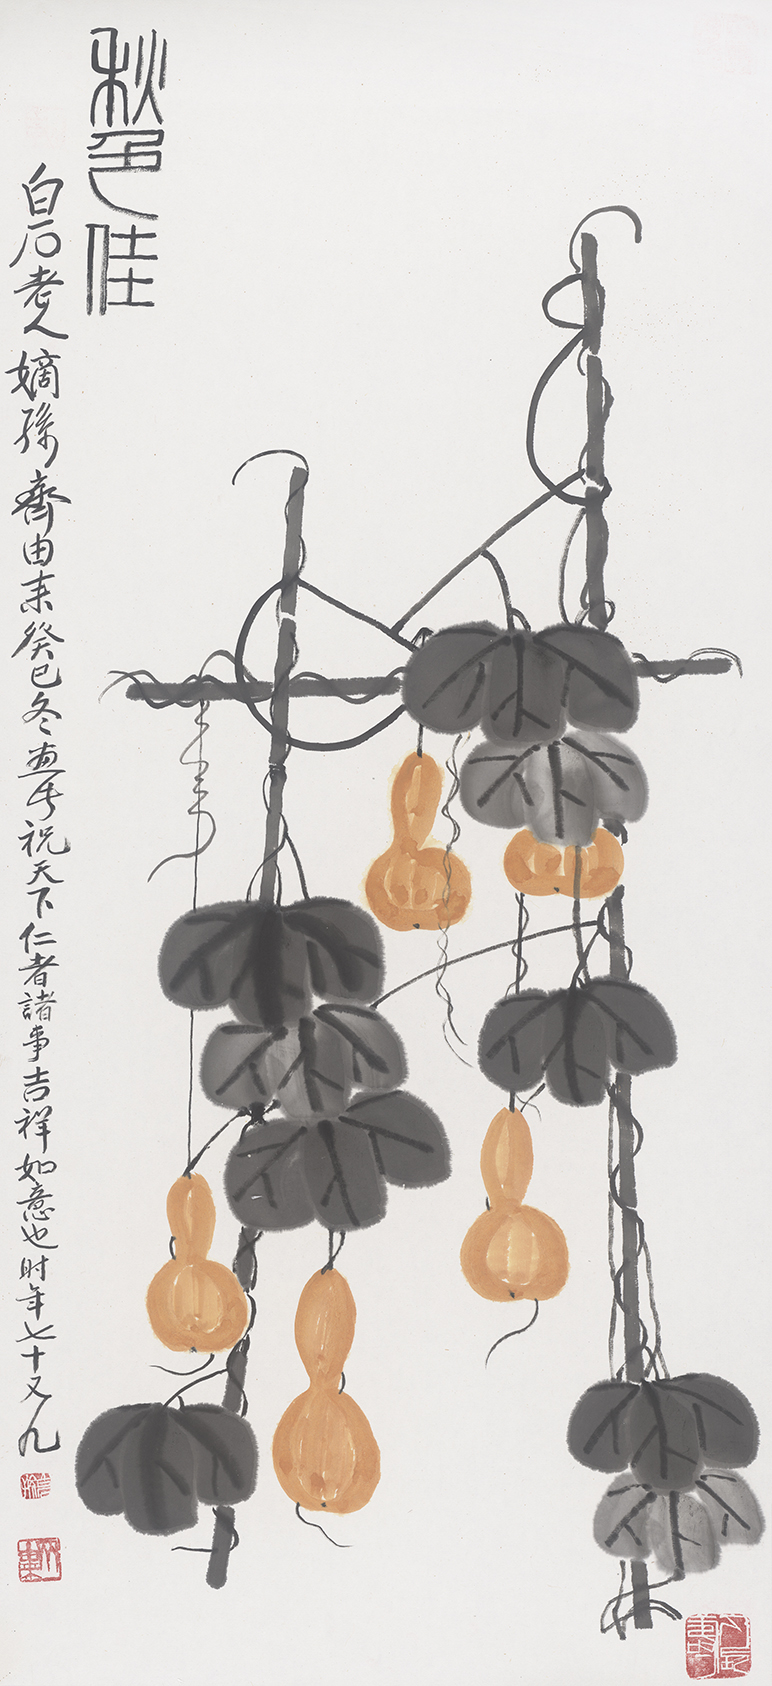 秋色佳
白石老人嫡孫齊由来癸巳冬画於祝天下仁者諸事吉祥如意也时年七十又九